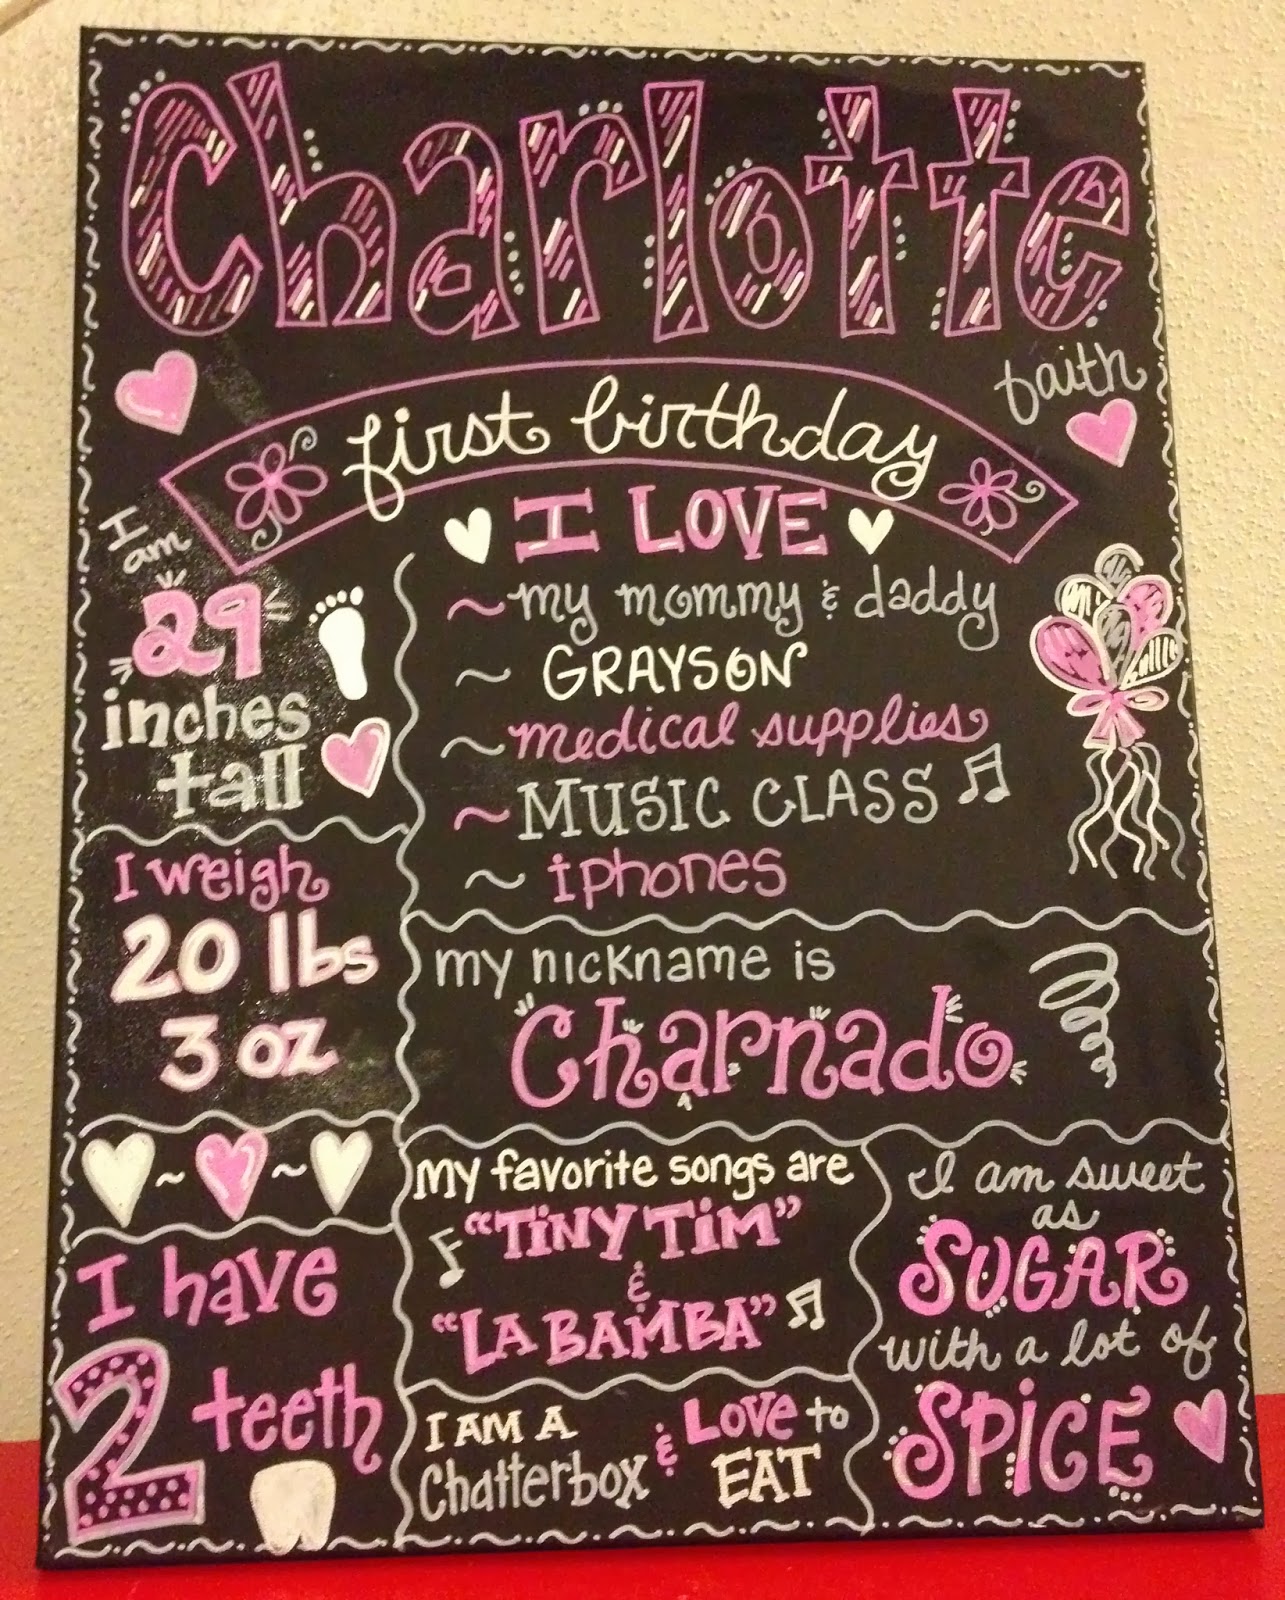 Charlotte
faith
first birthday
I am
29
inches
tall
I LOVE
~my mommy & daddy
~ GRAYSON
~medical supplies
~MUSIC CLASS
~ iphones
I weigh
20 lbs
3 oz
my nickname is
Charnado
~ ~
I have
2 teeth
My favorite songs are
"TiNY TiM"
&
"LA BAMBA"
I AM A
Chatterbox
& LOVE to
EAT
I am sweet
as
SUGAR
with a lot of
SPiCE